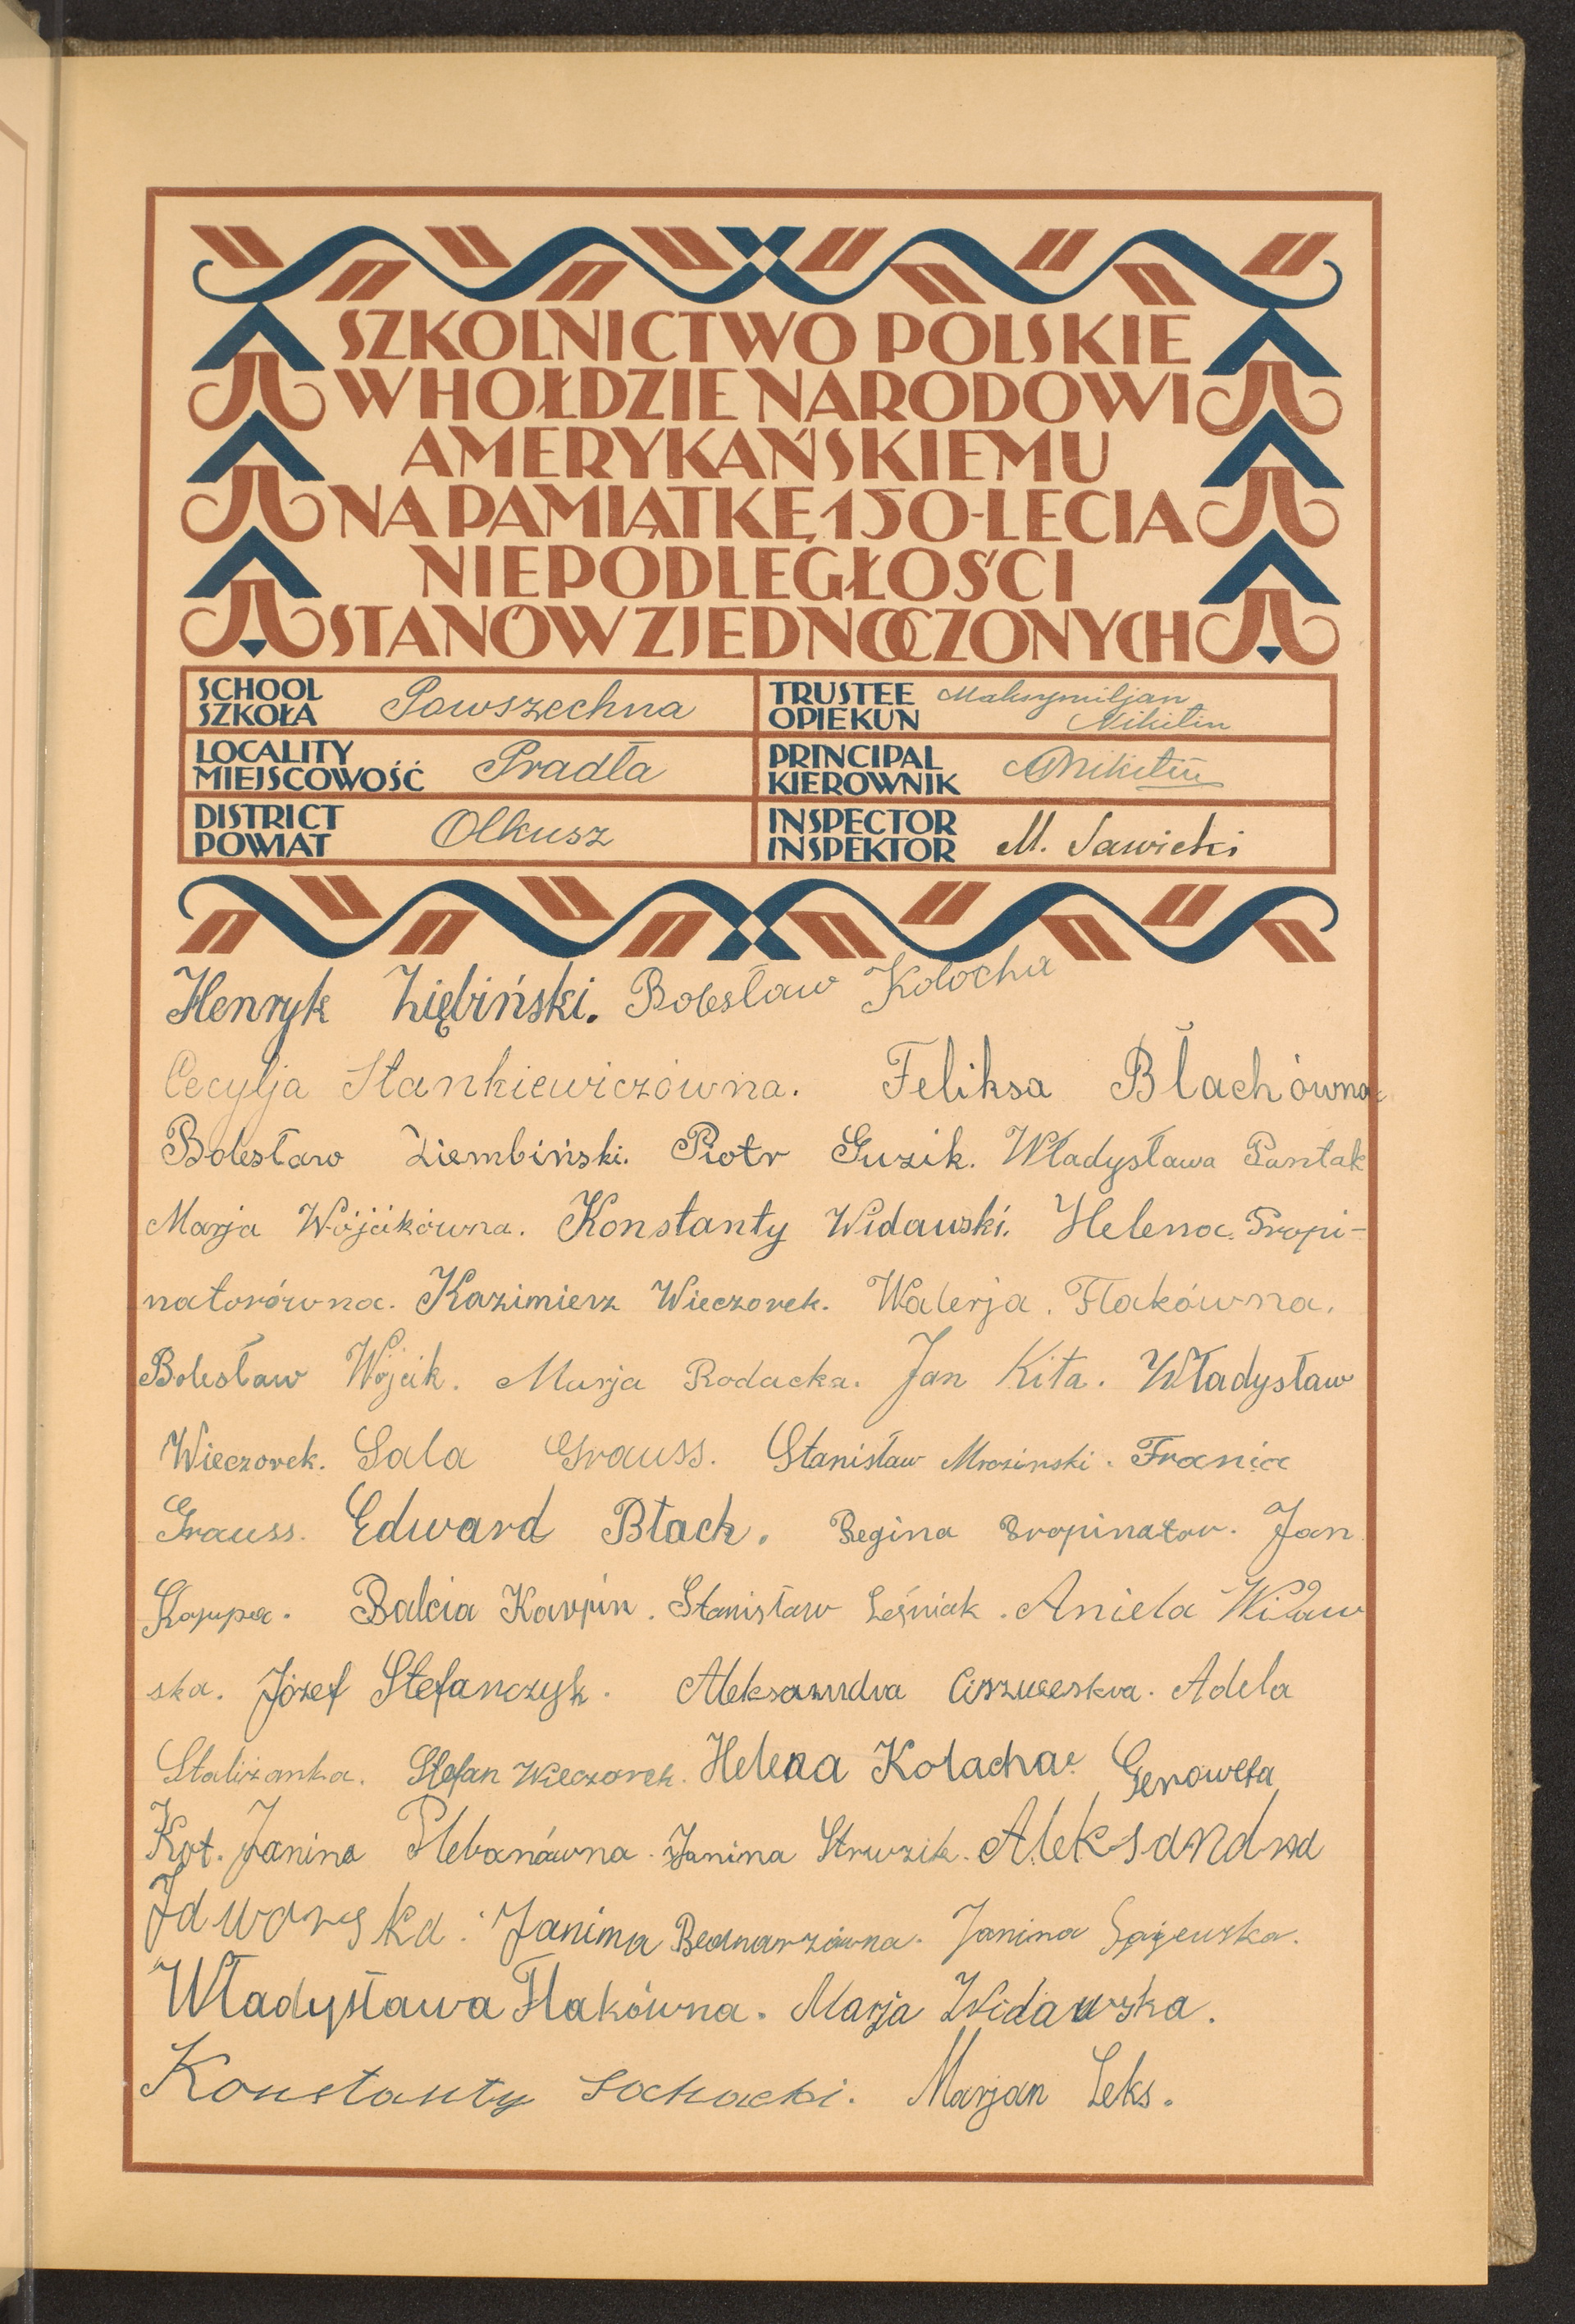 SZKOLNICTWO POLSKIE
W HOŁDZIE NARODOWI
AMERYKAŃSKIEMU
NA PAMIĄTKĘ 150-LECIA
NIEPODLEGŁOŚCI
STANÓW ZJEDNOCZONYCH
SCHOOL
SZKOŁA
Powszechna
TRUSTEE
OPIEKUN
Maksymiljan
Nikitin
LOCALITY
MIEJSCOWOŚĆ
Pradła
PRINCIPAL
KIEROWNIK
MNikitin
DISTRICT
POWIAT
Olkusz
INSPECTOR
INSPEKTOR
M. Sawicki
Henryk Ziębiński. Bolesław Kołocha
Cecylja Stankiewiczówna. Feliksa Błachówna.
Bolesław Ziembiński. Piotr Guzik. Władysława Pantak
Marja Wójcikówna. Konstanty Widawski. Helena Propi-
natorówna. Kazimierz Wieczorek. Walerja Flakówna.
Bolesław Wójcik. Marja Rodacka. Jan Kita. Władysław
Wieczorek. Sala Grauss. Stanisław Mrozinski. Frania
Grauss. Edward Błach. Regina Propinator. Jan
Kapupa. Balcia Karpin. Stanisław Leśniak. Aniela Widaw
ska. Józef Stefańczyk. Aleksandra Adela
Stefan Wieczorek. Helena Kołacha. Genowefa
Kot. Janina Plebanówna. Janina Struzik. Aleksandra
Janina Bednarzówna. Janina
Władysława Flakówna. Marja Widawska.
Konstanty Sochacki. Marjan Leks.